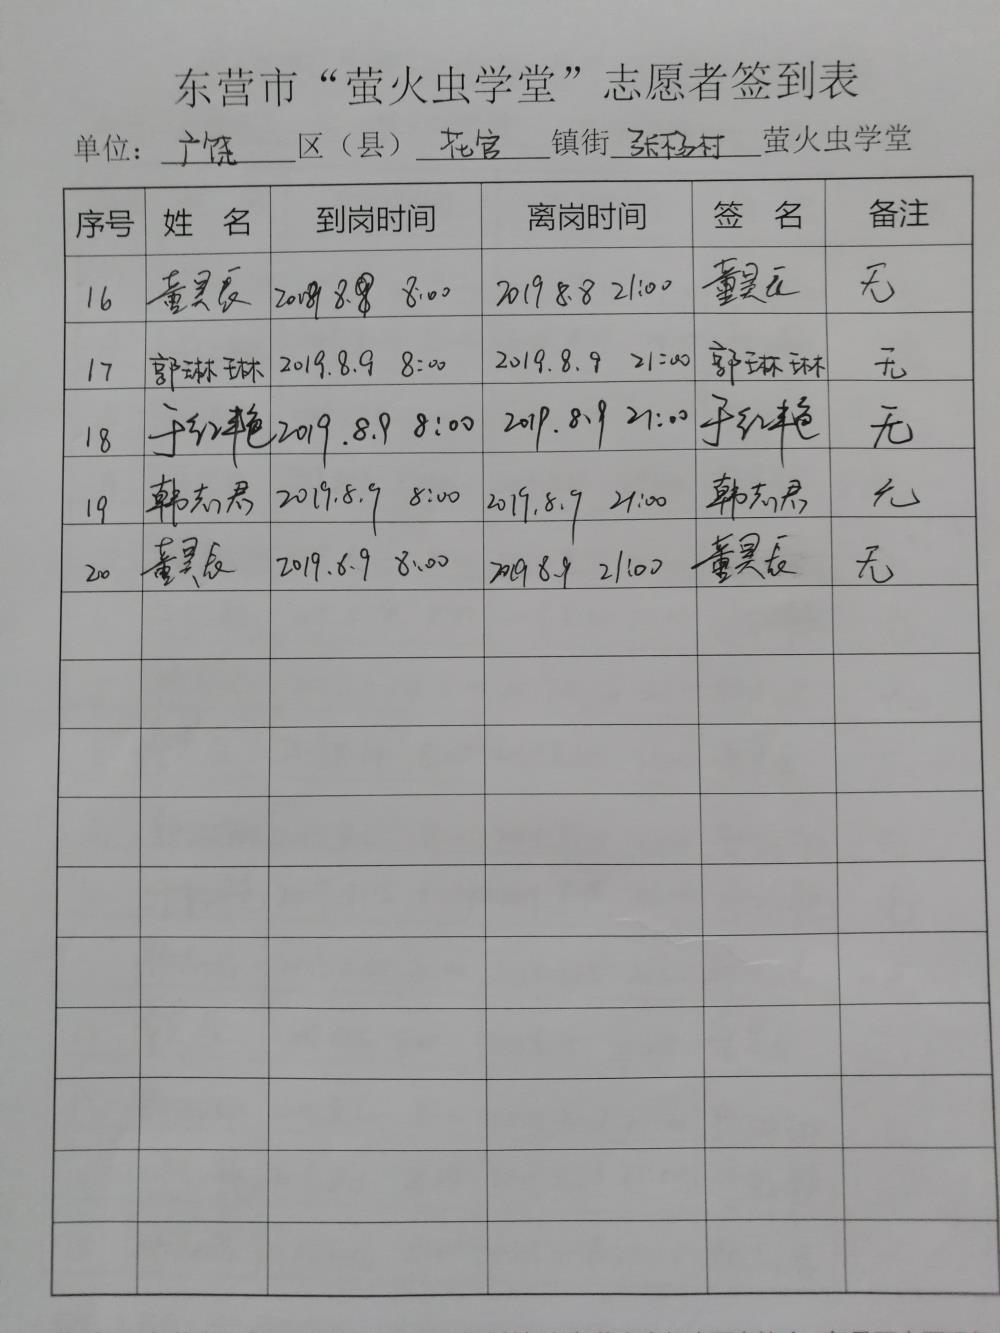 东营市“萤火虫学堂”志愿者签到表
单位：广饶区（县）花官镇街张杨村萤火虫学堂
序号 姓 名 到岗时间 离岗时间 签 名 备注
16 董昊辰 2019 8.8 8:00 2019 8.8 21:00 董昊辰 无
17 郭琳琳 2019.8.9 8:00 2019.8.9 21:00 郭琳琳 无
18 于红艳 2019.8.9 8:00 2019.8.9 21:00 于红艳 无
19 韩志君 2019.8.9 8:00 2019.8.9 21:00 韩志君 无
20 董昊辰 2019.8.9 8:00 2019 8.9 21:00 董昊辰 无